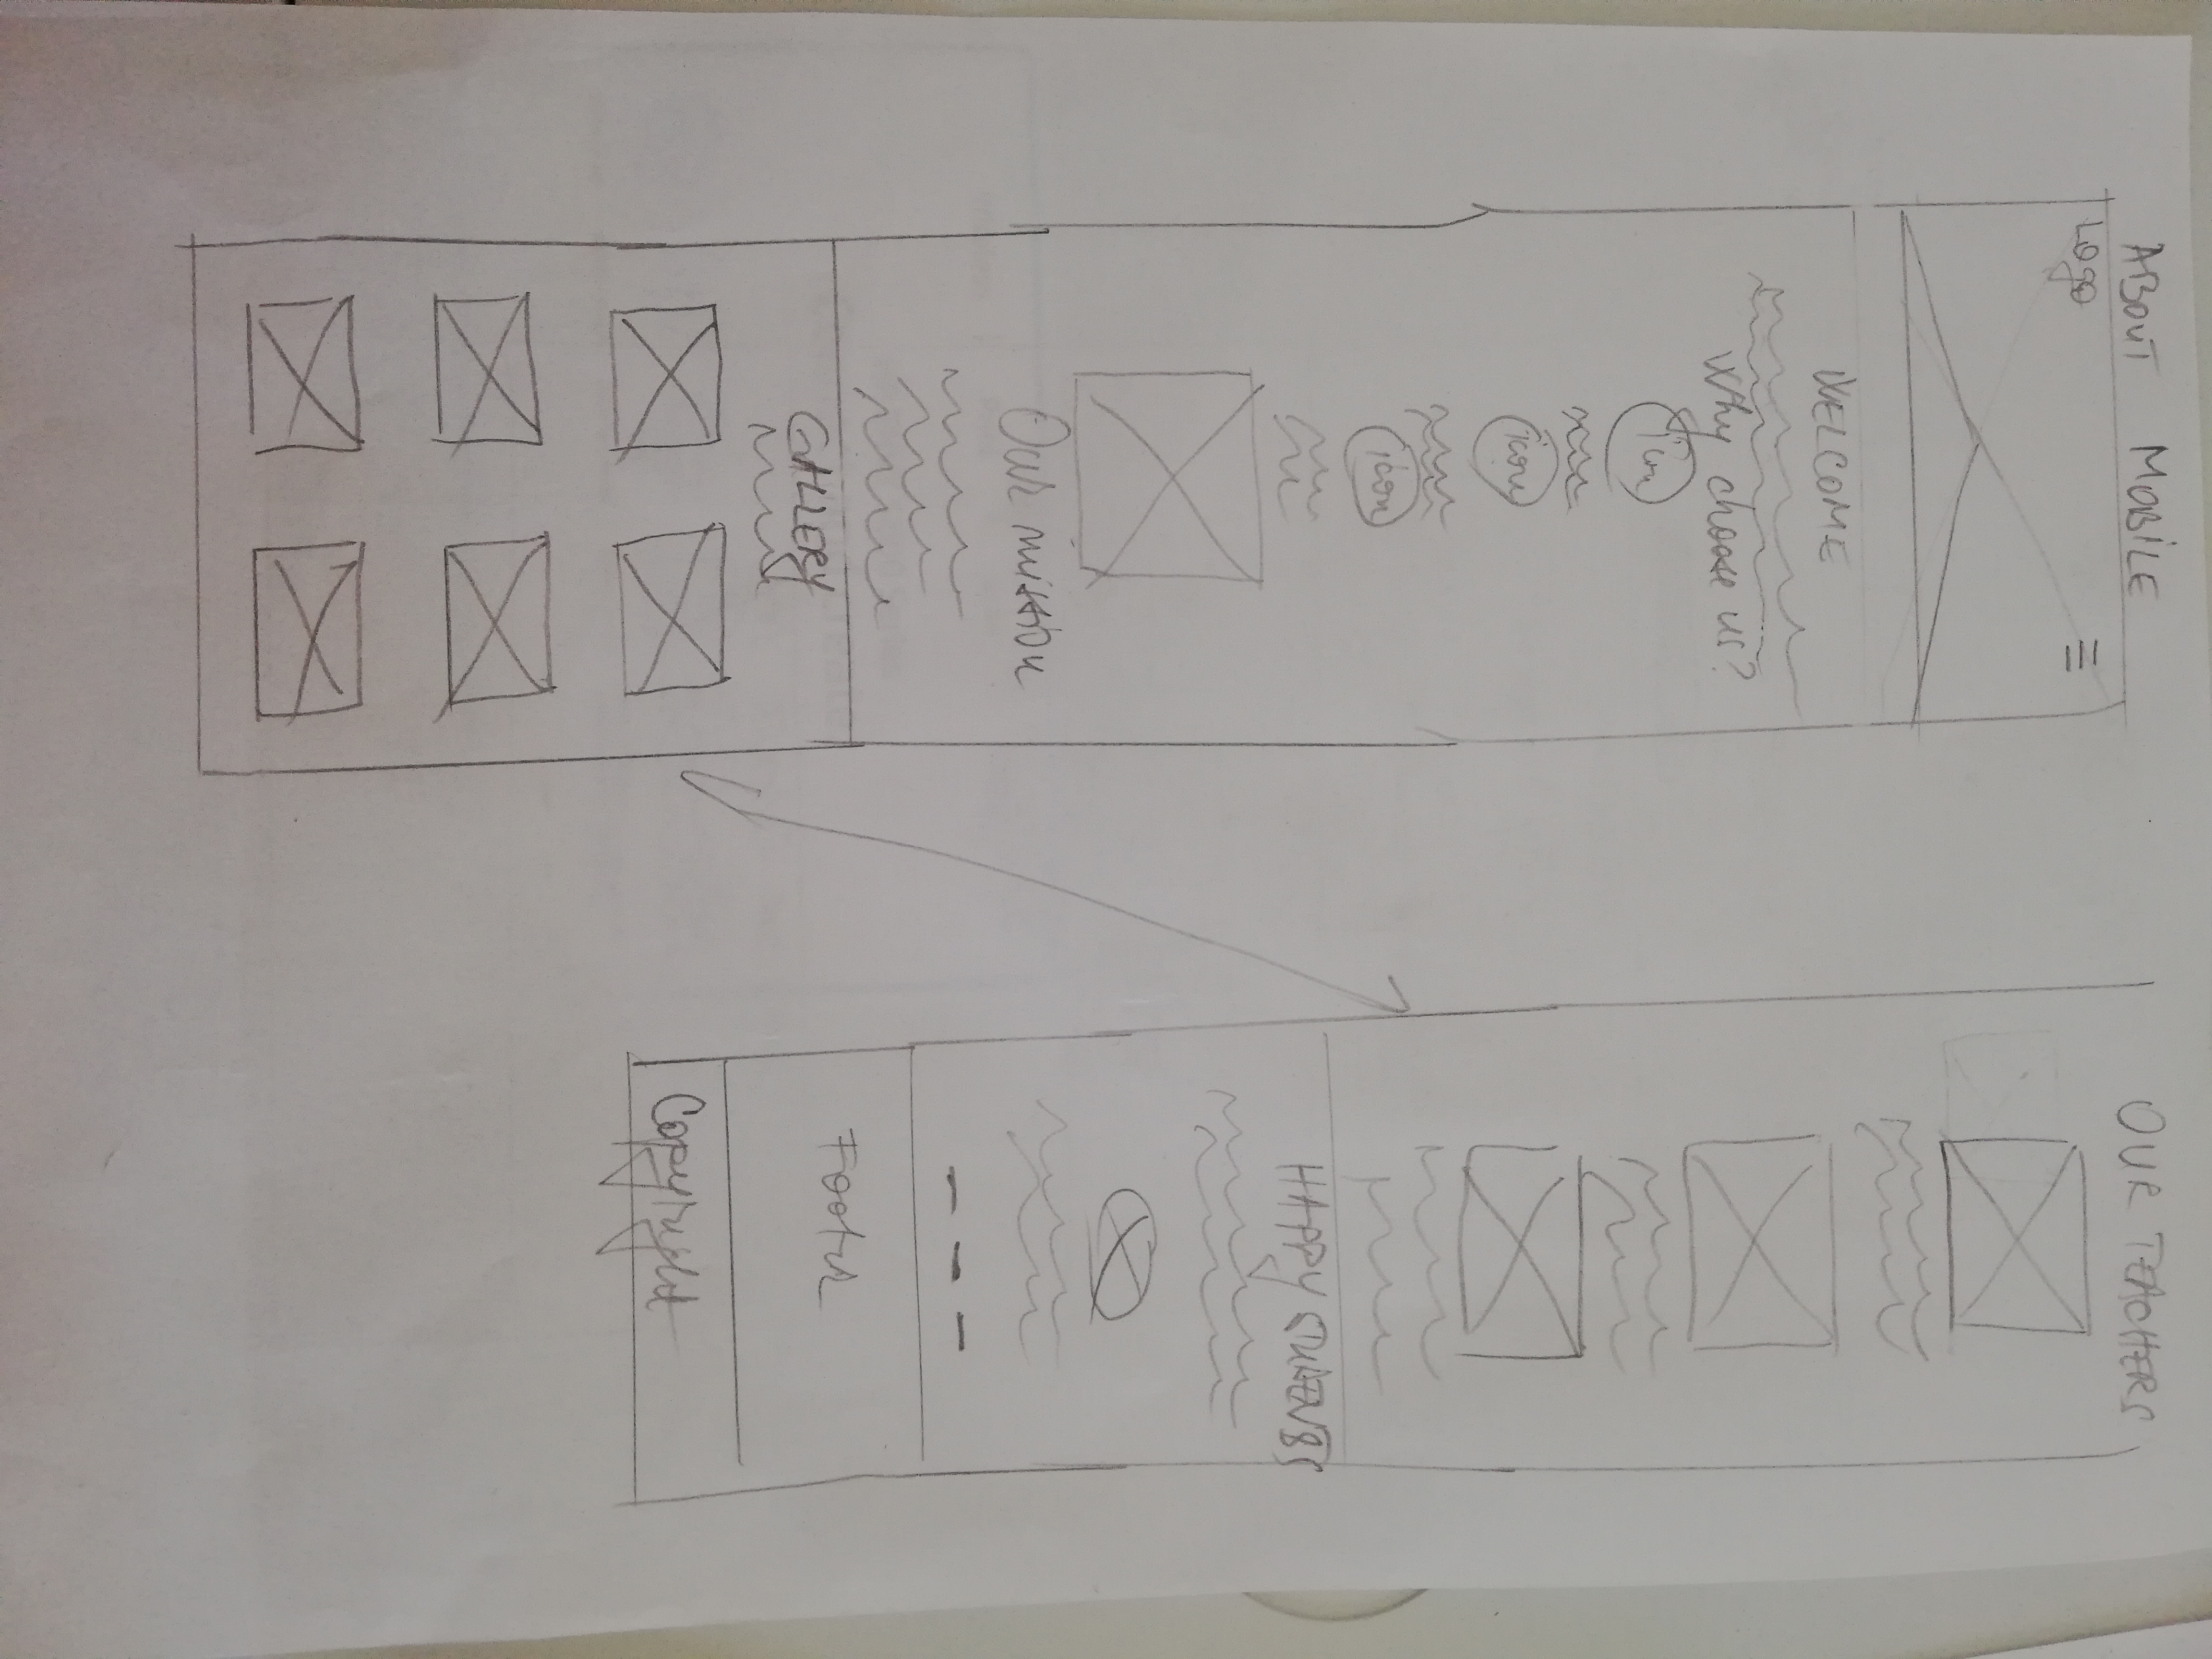 ABOUT MOBILE
Logo
WELCOME
Why choose us?
icon
icon
icon
Our mission
GALLERY
OUR TEACHERS
HAPPY
Footer
Copyright